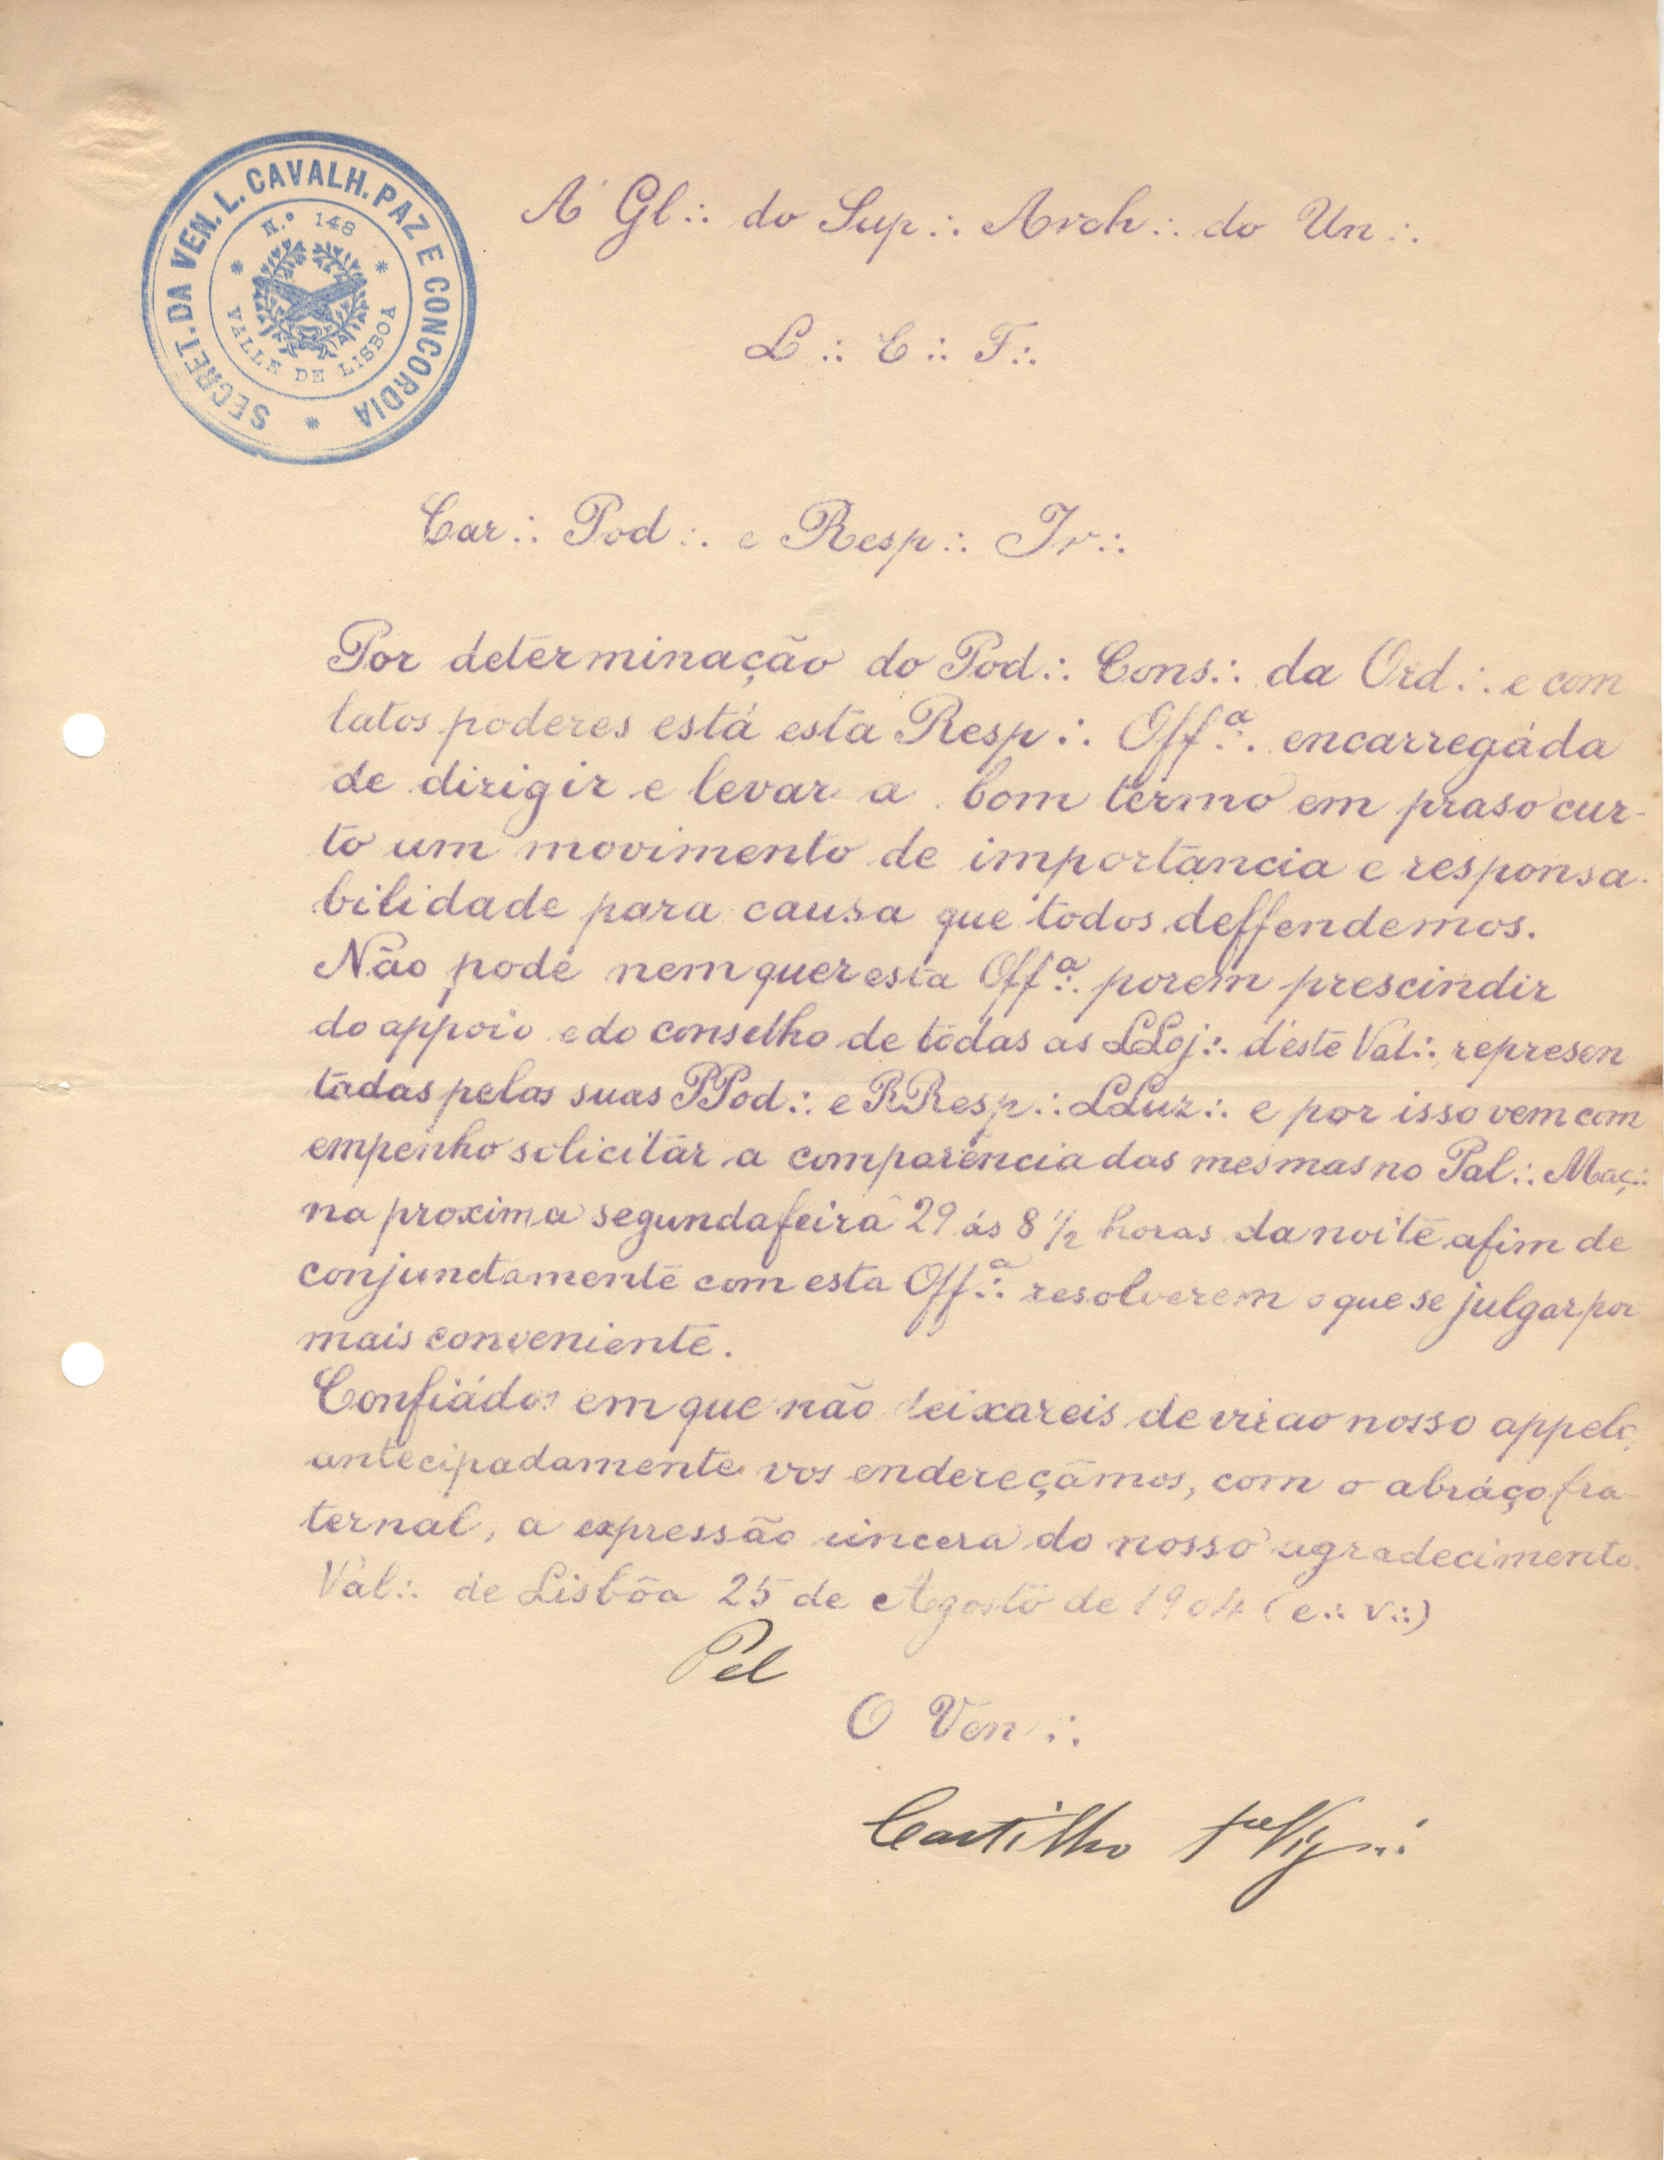 SECRET. DA VEN. L. CAVALH. PAZ E CONCORDIA
N.º 148
VALLE DE LISBOA
A Gl∴ do Sup∴ Arch∴ do Un∴
L∴ E∴ F∴
Car∴ Pod∴ e Resp∴ Ir∴
Por determinação do Pod∴ Cons∴ da Ord∴ e com
latos poderes está esta Resp∴ Offª∴ encarregáda
de dirigir e levar a bom termo em praso cur-
to um movimento de importancia e responsa-
bilidade para causa que todos deffendemos.
Não pode nem quer esta Offª∴ porem prescindir
do appoio e do conselho de todas as LLoj∴ d'este Val∴ represen
tadas pelas suas PPod∴ e RResp∴ LLuz∴ e por isso vem com
empenho solicitar a comparencia das mesmas no Pal∴ Maç∴
na proxima segunda feira 29 ás 8 1/2 horas da noite afim de
conjunctamente com esta Offª∴ resolverem o que se julgar por
mais conveniente.
Confiádos em que não deixareis de vir ao nosso appelo,
antecipadamente vos endereçâmos, com o abráço fra-
ternal, a expressão sincera do nosso agradecimento.
Val∴ de Lisbôa 25 de Agosto de 1904 (e∴ v∴)
Pel
O Ven∴
Castilho 1º Vig∴